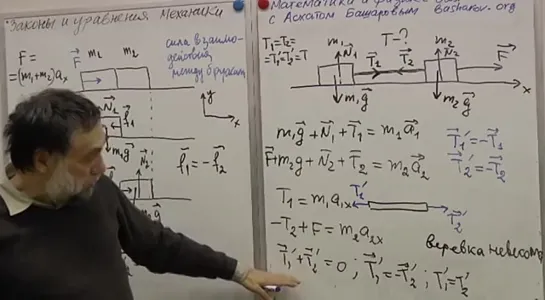 Законы и уравнения Механики
F =
= (m₁+m₂)aₓ
F⃗
m₁ m₂
сила взаимо-
действия
между брусками
y
x
N⃗₂
f⃗₁
m₁g⃗
f⃗₁ = -f⃗₂
N⃗₂
m₂g⃗
Математика и физика
с Аскатом Башаровым Basharov.org
T₁=T₂=
=T₁'=T₂'=T
T-?
m₁ N⃗₁
T⃗₁ T⃗₂
m₂ N⃗₂
F⃗
x
m₁g⃗
m₂g⃗
m₁g⃗+N⃗₁+T⃗₁ = m₁a⃗₁
T⃗₁'=-T⃗₁
F⃗+m₂g⃗+N⃗₂+T⃗₂ = m₂a⃗₂
T⃗₂'=-T⃗₂
T₁ = m₁a₁ₓ
T⃗₁'
T⃗₂'
-T₂+F = m₂a₂ₓ
веревка невесома
T⃗₁'+T⃗₂'=0 ; T⃗₁'=-T⃗₂' ; T₁'=T₂'